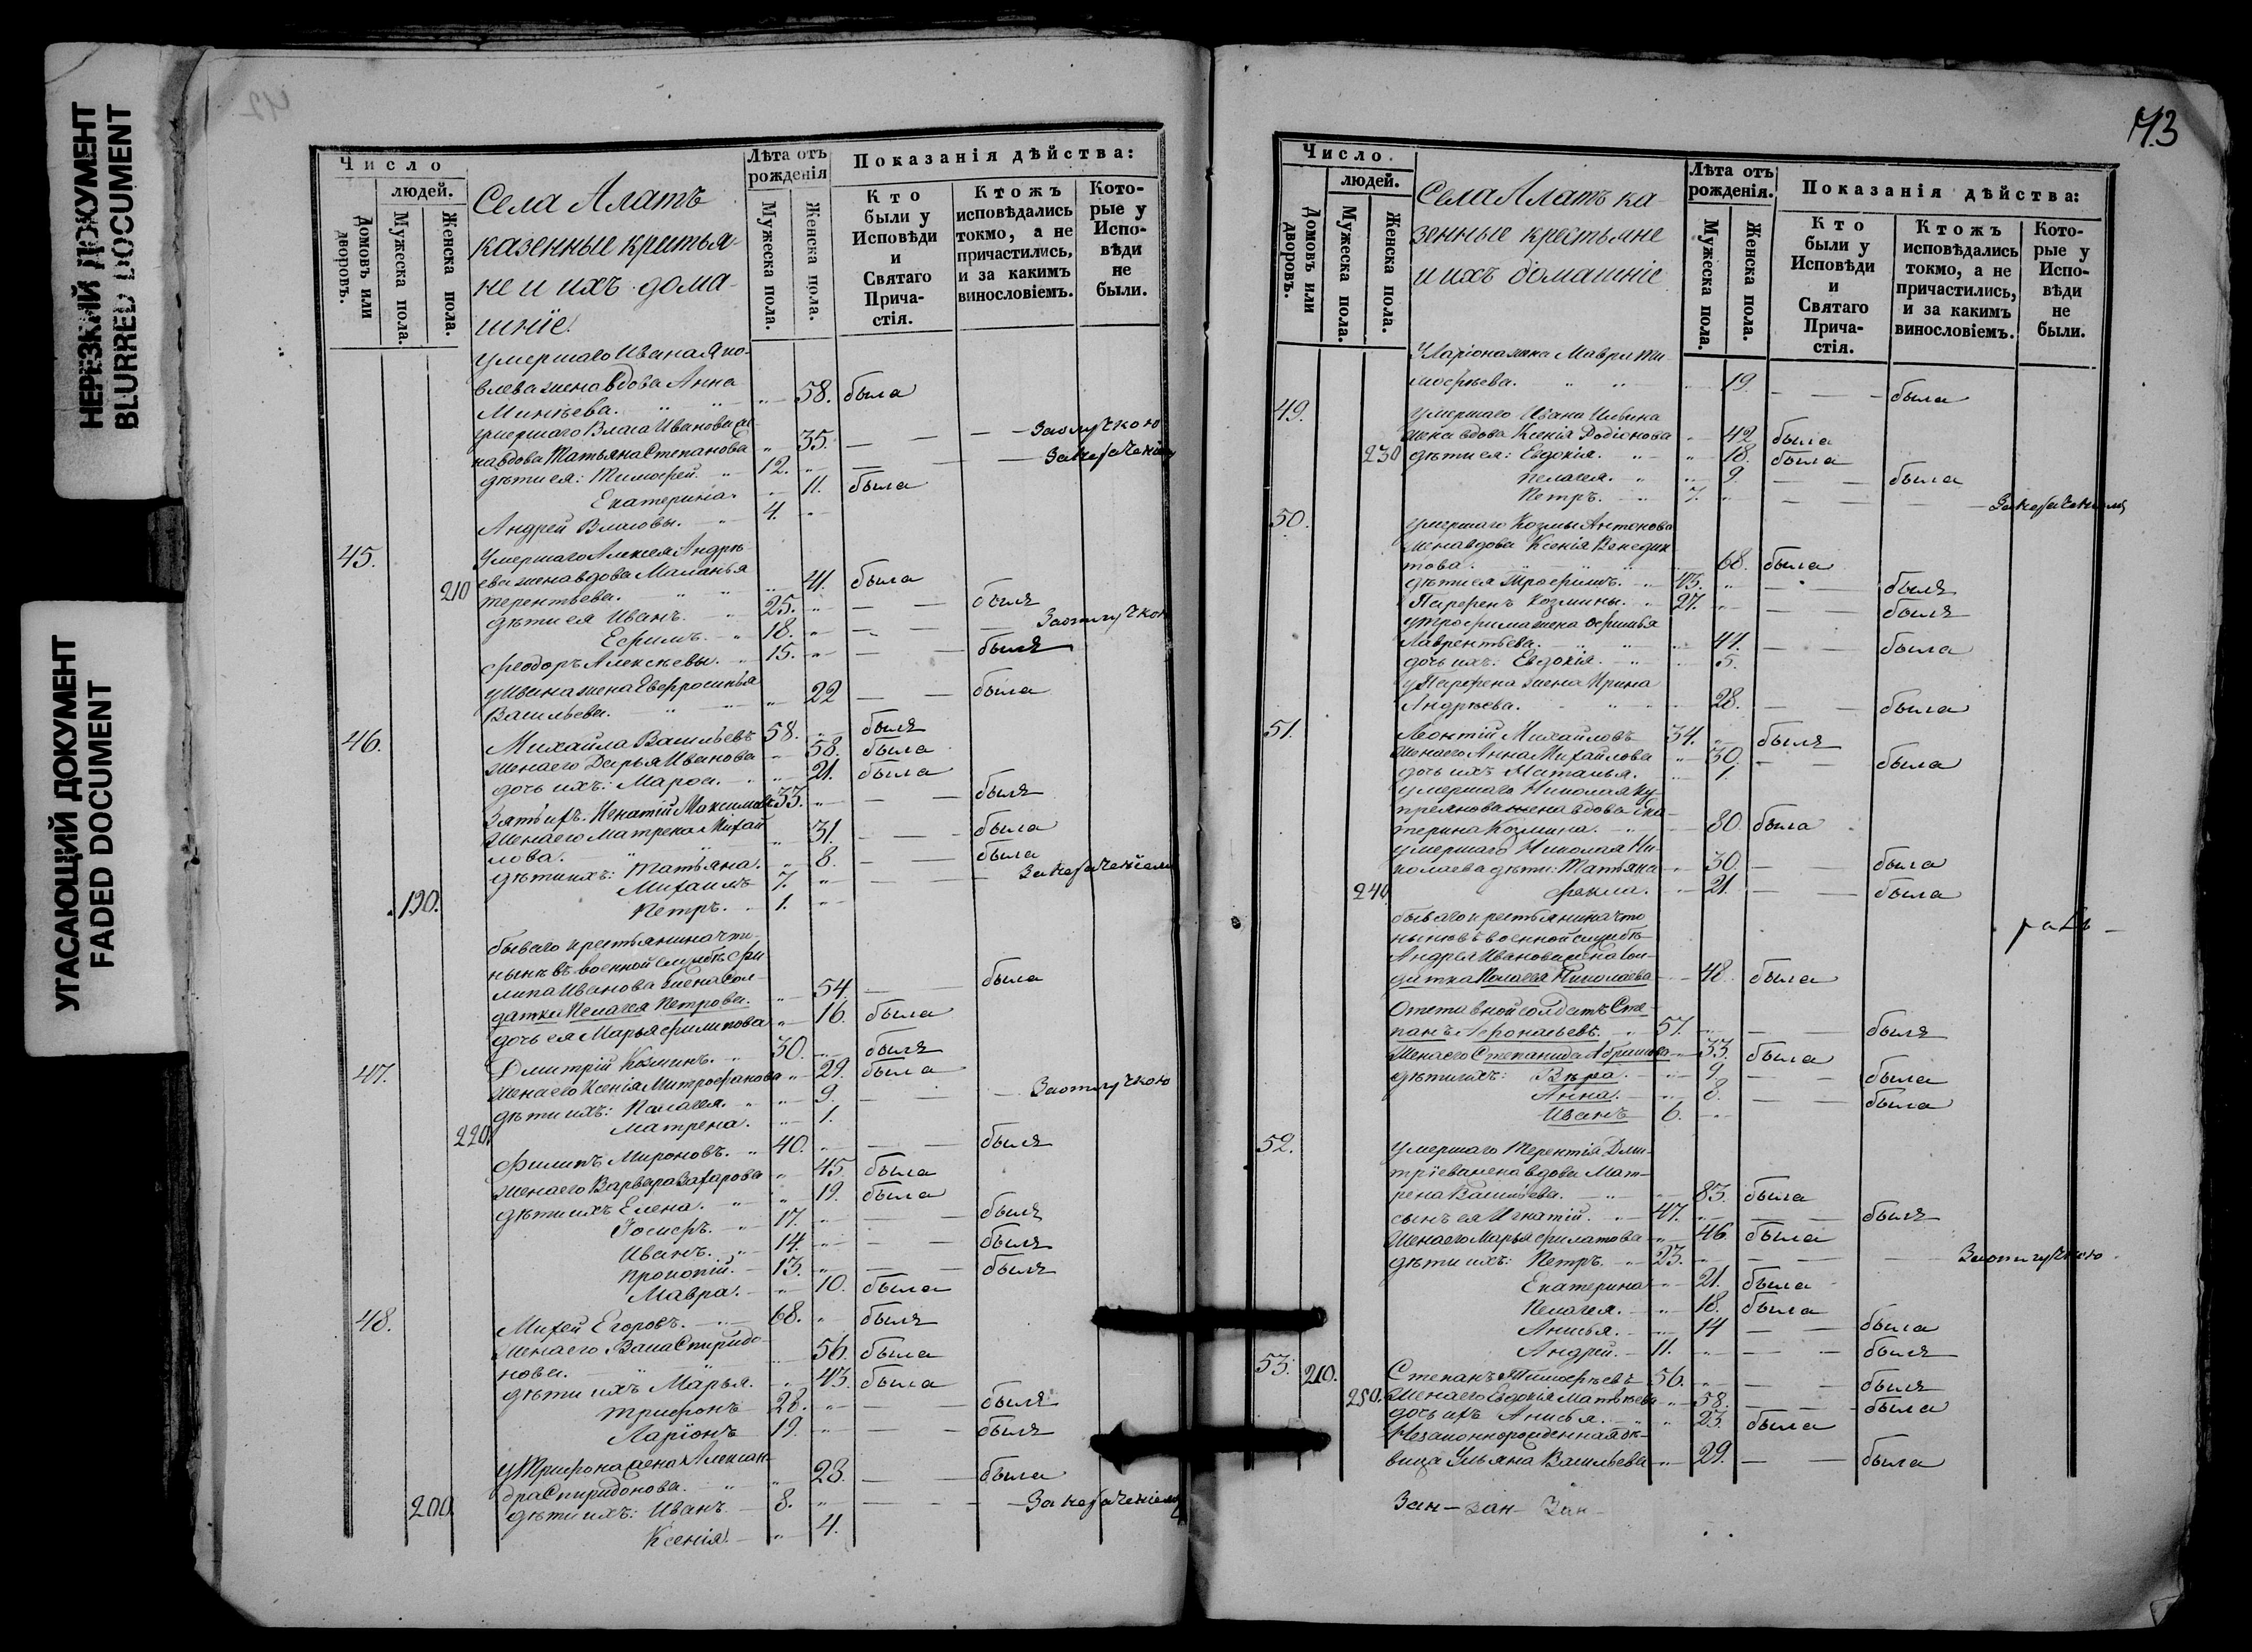 НЕРЕЗКИЙ ДОКУМЕНТ
BLURRED DOCUMENT
УГАСАЮЩИЙ ДОКУМЕНТ
FADED DOCUMENT
42
Число
людей.
Домовъ или дворовъ.
Мужеска пола.
Женска пола.
Села Алатъ
казенные кретья-
не и ихъ дома-
шніе
Лѣта отъ рожденія
Мужеска пола.
Женска пола.
Показанія дѣйства:
Кто были у Исповѣди и Святаго Прича-стія.
Ктожъ исповѣдались токмо, а не причастились, и за какимъ винословіемъ.
Кото-рые у Испо-вѣди не были.
умершаго Ивана Яко-
влева жена вдова Анна
Минѣева. 58. была
умершаго Власа Иванова же-
на вдова Татьяна Степанова 35. За отлучкою
дѣти ея: Тимофей. 12. За нерачениемъ
Екатерина. 11. была
Андрей Власовы. 4.
45. Умершаго Алексея Андрѣ
ева жена вдова Маланья
210 терентьева. 41. была
дѣти ея Иванъ. 25. былъ
Ефимъ. 18. За отлучкою
Феодоръ Алексѣевы. 15. былъ
у Ивана жена Евфросинья
Васильева. 22 была
46. Михайла Васильевъ 58. былъ
жена его Дарья Иванова 58. была
дочь ихъ: Марфа. 21. была
Зять ихъ. Игнатій Максимовъ 33. былъ
жена его Матрена Михай
лова. 31. была
дѣти ихъ: Татьяна. 8. была
Михаилъ 7. За нераченіемъ
190. Петръ. 1.
бываго крестьянина что
нынѣ въ военной службѣ Фи
липа Иванова жена Сол-
датка Пелагея Петрова. 54 была
дочь ея Марья филипова 16. была
47. Дмитрій Козминъ. 30. былъ
жена его Ксенія Митрофанова 29. была
дѣти ихъ: Пелагея. 9. За отлучкою
220. Матрена. 1.
Филипъ Мироновъ. 40. былъ
жена его Варвара Захарова 45. была
дѣти ихъ Елена. 19. была
Іосифъ. 17. былъ
Иванъ. 14. былъ
Прокопій. 13. былъ
Мавра. 10. была
48. Михей Егоровъ. 68. былъ
жена его Васа Спиридо-
нова. 56. была
дѣти ихъ Марья. 43. была
Трифонъ 28. былъ
Ларіонъ 19. былъ
у Трифона жена Алексан-
дра Спиридонова. 28. была
200 дѣти ихъ: Иванъ. 8. За нераченіемъ
Ксенія. 4.
43
Число.
людей.
Домовъ или дворовъ.
Мужеска пола.
Женска пола.
Села Алатъ ка-
зенные крестьяне
и ихъ домашніе
Лѣта отъ рожденія.
Мужеска пола.
Женска пола.
Показанія дѣйства:
Кто были у Исповѣди и Святаго Прича-стія.
Ктожъ исповѣдались токмо, а не причастились, и за какимъ винословіемъ.
Кото-рые у Испо-вѣди не были.
У Ларіона жена Мавра Ти-
мофѣева. 19. была
49. Умершаго Ивана
жена вдова Ксенія Родіонова 42 была
230 дѣти ея: Евдокія. 18. была
Пелагея. 9. была
Петръ. 7. За нераченіемъ
50. Умершаго Козмы Антонова
жена вдова Ксенія Венедик
това. 68. была
дѣти ея Трофимъ. 43. былъ
Парфенъ Козмины. 27. былъ
у Трофима жена Офимья
Лаврентьева. 41. была
дочь ихъ: Евдокія. 5.
у Парфена жена Ирина
Андрѣева. 28. была
51. Леонтій Михайловъ 34. былъ
жена его Анна Михайлова 30. была
дочь ихъ Наталья. 1.
Умершаго Николая Ку-
преянова жена вдова Ека-
терина Козмина. 80. была
умершаго Николая Ни-
колаева дѣти: Татьяна 30. была
240. Фекла. 21. была
бываго крестьянина что
нынѣ въ военной службѣ
Андрея Иванова жена Сол-
датка Пелагея Николаева 48. была
Отставной солдатъ Сте-
панъ Афонасьевъ. 57. былъ
жена его Степанида Абрамова 33. была
дѣти ихъ: Вѣра. 9 была
Анна. 8. была
Иванъ 6.
52. Умершаго Терентія Дми-
тріева жена вдова Мат-
рена Васильева. 83. была
сынъ ея Игнатій. 47. былъ
жена его Марья филатова 46. была
дѣти ихъ: Петръ. 23. За отлучкою
Екатерина 21. была
Пелагея. 18. была
Анисья. 14 была
Андрей. 11. былъ
53. 210. Степанъ Тимофѣевъ 56. былъ
250. жена его Евдокія Матвѣева 58. была
дочь ихъ Анисья. 23. была
Незаконнорожденная дѣ-
вица Ульяна Васильева 29. была
Зан- зан- Зан-